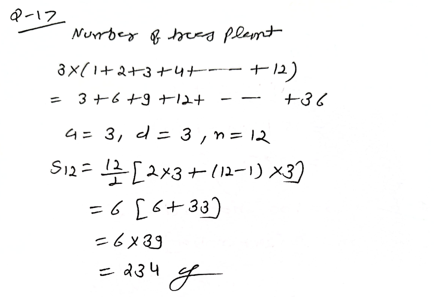 Q-17
Number of trees plant
3×(1+2+3+4+---- +12)
= 3+6+9+12+ - - +36
a = 3, d = 3, n = 12
S12 = 12/2 [2×3+(12-1)×3]
= 6 [6+33]
= 6×39
= 234